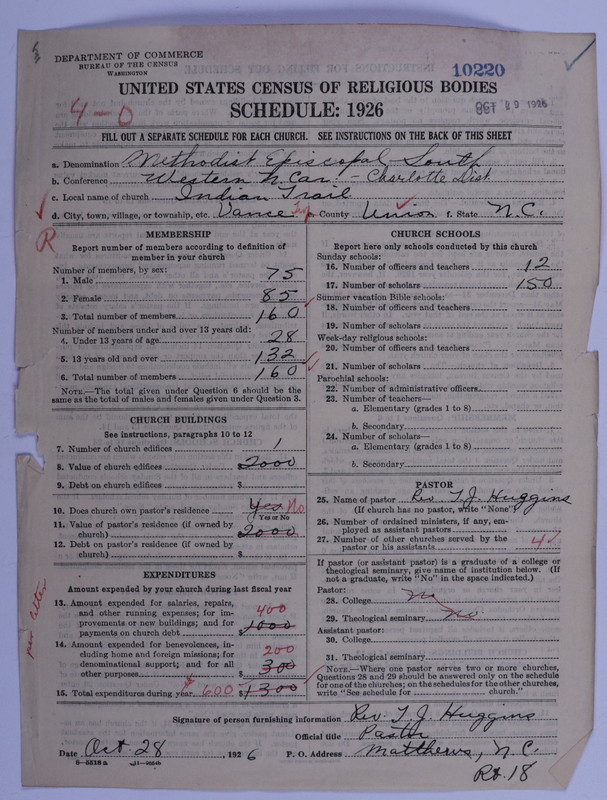 DEPARTMENT OF COMMERCE
BUREAU OF THE CENSUS
WASHINGTON
10220
OCT 29 1926
4-0
UNITED STATES CENSUS OF RELIGIOUS BODIES
SCHEDULE: 1926
FILL OUT A SEPARATE SCHEDULE FOR EACH CHURCH. SEE INSTRUCTIONS ON THE BACK OF THIS SHEET
a. Denomination Methodist Episcopal South
b. Conference Western N. Car. - Charlotte Dist
c. Local name of church Indian Trail
d. City, town, village, or township, etc. Vance Twp e. County Union f. State N.C.
R
MEMBERSHIP
Report number of members according to definition of member in your church
Number of members, by sex:
1. Male 75
2. Female 85
3. Total number of members 160
Number of members under and over 13 years old:
4. Under 13 years of age 28
5. 13 years old and over 132
6. Total number of members 160
NOTE.—The total given under Question 6 should be the
same as the total of males and females given under Question 3.
CHURCH BUILDINGS
See instructions, paragraphs 10 to 12
7. Number of church edifices 1
8. Value of church edifices $2000
9. Debt on church edifices $
10. Does church own pastor's residence Yes No
Yes or No
11. Value of pastor's residence (if owned by
church) $2000
12. Debt on pastor's residence (if owned by
church) $
EXPENDITURES
Amount expended by your church during last fiscal year
13. Amount expended for salaries, repairs,
and other running expenses; for im-
provements or new buildings; and for
payments on church debt $1000 400
14. Amount expended for benevolences, in-
cluding home and foreign missions; for
denominational support; and for all
other purposes 300 200
15. Total expenditures during year $600 $1300
per letter
CHURCH SCHOOLS
Report here only schools conducted by this church
Sunday schools:
16. Number of officers and teachers 12
17. Number of scholars 150
Summer vacation Bible schools:
18. Number of officers and teachers
19. Number of scholars
Week-day religious schools:
20. Number of officers and teachers
21. Number of scholars
Parochial schools:
22. Number of administrative officers
23. Number of teachers—
a. Elementary (grades 1 to 8)
b. Secondary
24. Number of scholars—
a. Elementary (grades 1 to 8)
b. Secondary
PASTOR
25. Name of pastor Rev T. J. Huggins
(If church has no pastor, write "None")
26. Number of ordained ministers, if any, em-
ployed as assistant pastors
27. Number of other churches served by the
pastor or his assistants 4
If pastor (or assistant pastor) is a graduate of a college or
theological seminary, give name of institution below. (If
not a graduate, write "No" in the space indicated.)
Pastor:
28. College No
29. Theological seminary No
Assistant pastor:
30. College
31. Theological seminary
NOTE.—Where one pastor serves two or more churches,
Questions 28 and 29 should be answered only on the schedule
for one of the churches; on the schedules for the other churches,
write "See schedule for church."
Signature of person furnishing information Rev. T. J. Huggins
Official title Pastor
Date Oct. 28, 1926 P. O. Address Matthews, N.C.
Rt. 18